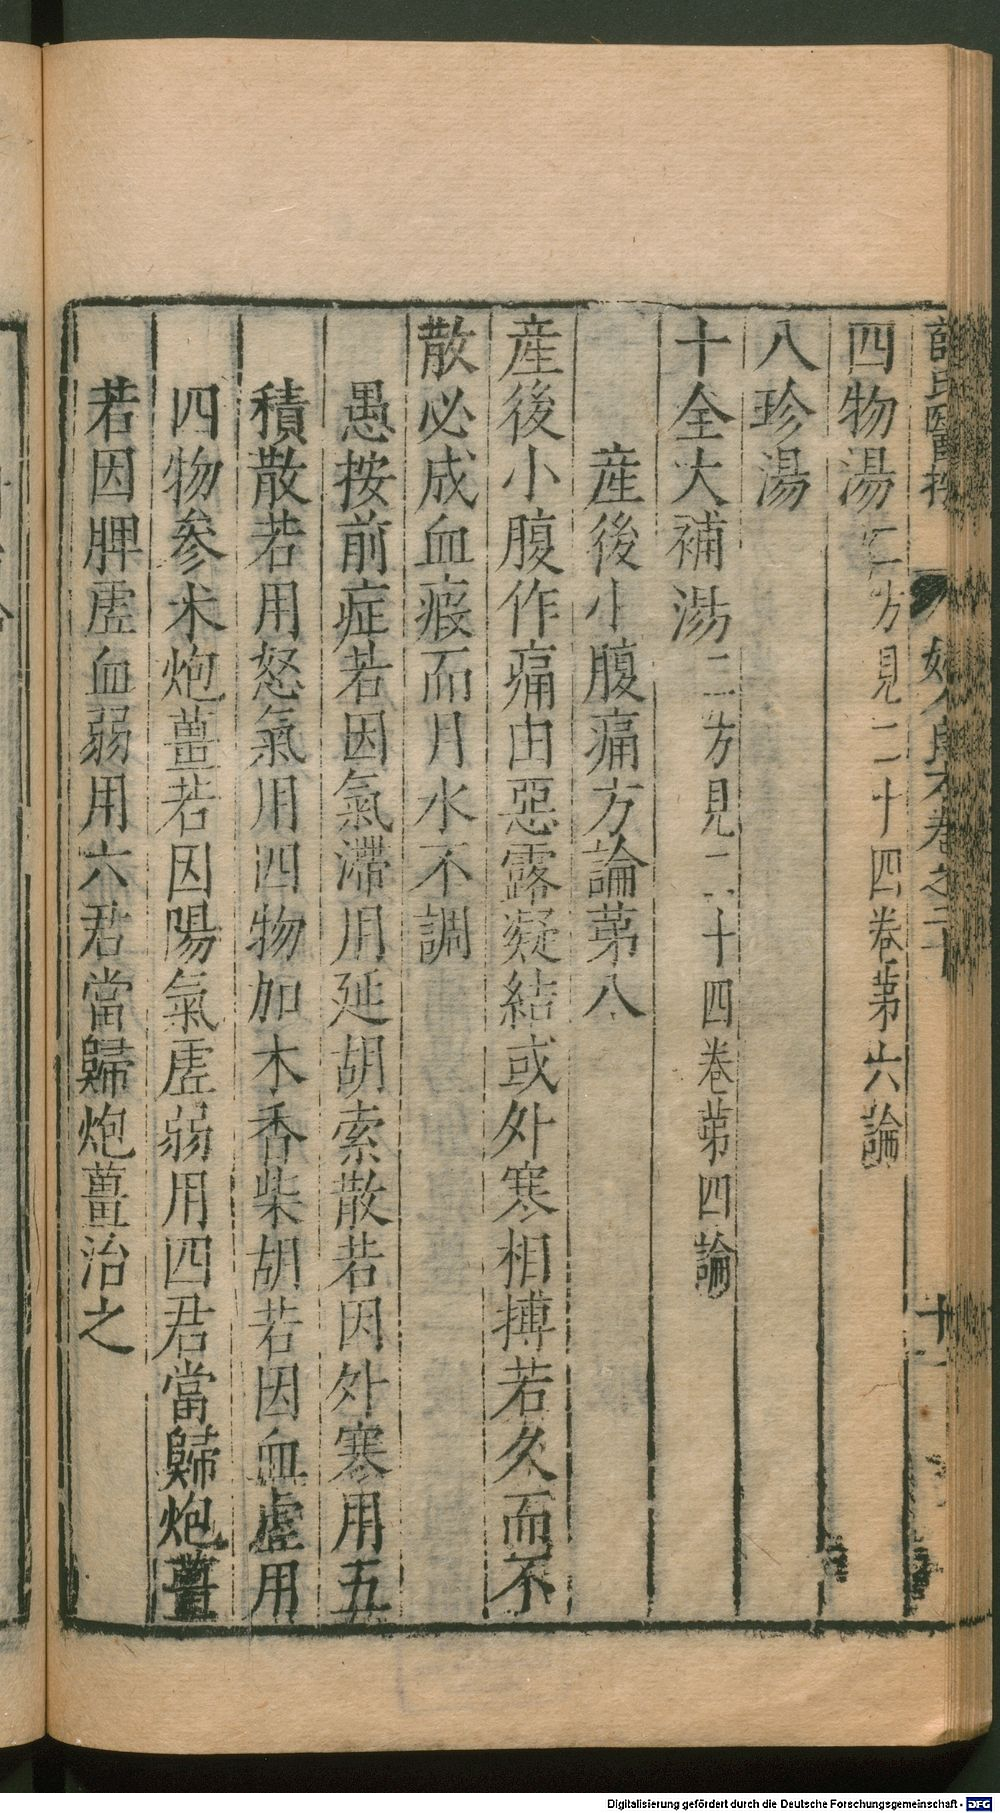 薛氏醫按 婦人良方卷之二十 十一
四物湯二方見二十四卷第六論
八珍湯
十全大補湯二方見二十四卷第四論
産後小腹痛方論第八
産後小腹作痛由惡露凝結或外寒相搏若久而不
散必成血瘕而月水不調
愚按前症若因氣滯用延胡索散若因外寒用五
積散若用怒氣用四物加木香柴胡若因血虛用
四物參朮炮薑若因陽氣虛弱用四君當歸炮薑
若因脾虛血弱用六君當歸炮薑治之
Digitalisierung gefördert durch die Deutsche Forschungsgemeinschaft - DFG